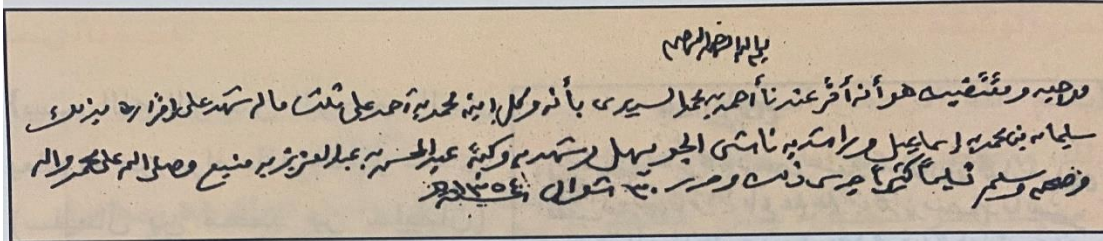 بسم الله الرحمن الرحيم
موجبه ومقتضيه هو أنه أقر عندنا أحمد بن محمد السديري بأنه وكل ابنه محمد بن أحمد على ثلث ماله شهد على إقراره بذلك
سليمان بن محمد بن إسماعيل وراشد بن ناشي الجويهل وشهد به وكتبه عبد المحسن بن عبد العزيز بن منيع وصلى الله على محمد وآله
وصحبه وسلم تسليماً كثيراً جرى ذلك وحرر ٣٠ شوال ١٣٥٤هـ